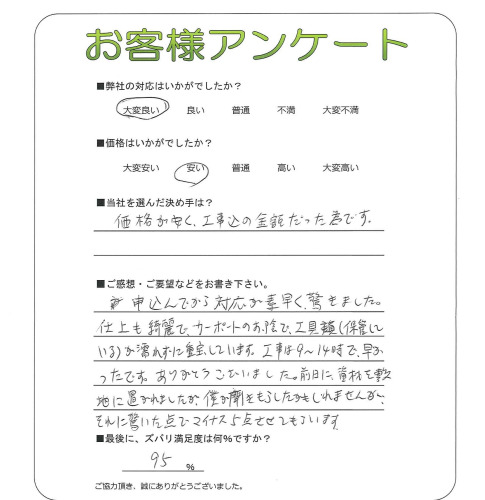 お客様アンケート
■弊社の対応はいかがでしたか？
大変良い 良い 普通 不満 大変不満
■価格はいかがでしたか？
大変安い 安い 普通 高い 大変高い
■当社を選んだ決め手は？
価格が安く、工事込の金額だった為です。
■ご感想・ご要望などをお書き下さい。
申込んでから対応が素早く、驚きました。
仕上も綺麗で、カーポートのお陰で、工具類(保管して
いる)が濡れずに重宝しています。工事は9〜14時で、早か
ったです。ありがとうございました。前日に、資材を敷
地に置かれましたが、僕が聞きもらしたかもしれませんが、
それに驚いた点でマイナス5点させてもらいます
■最後に、ズバリ満足度は何％ですか？
95 ％
ご協力頂き、誠にありがとうございました。